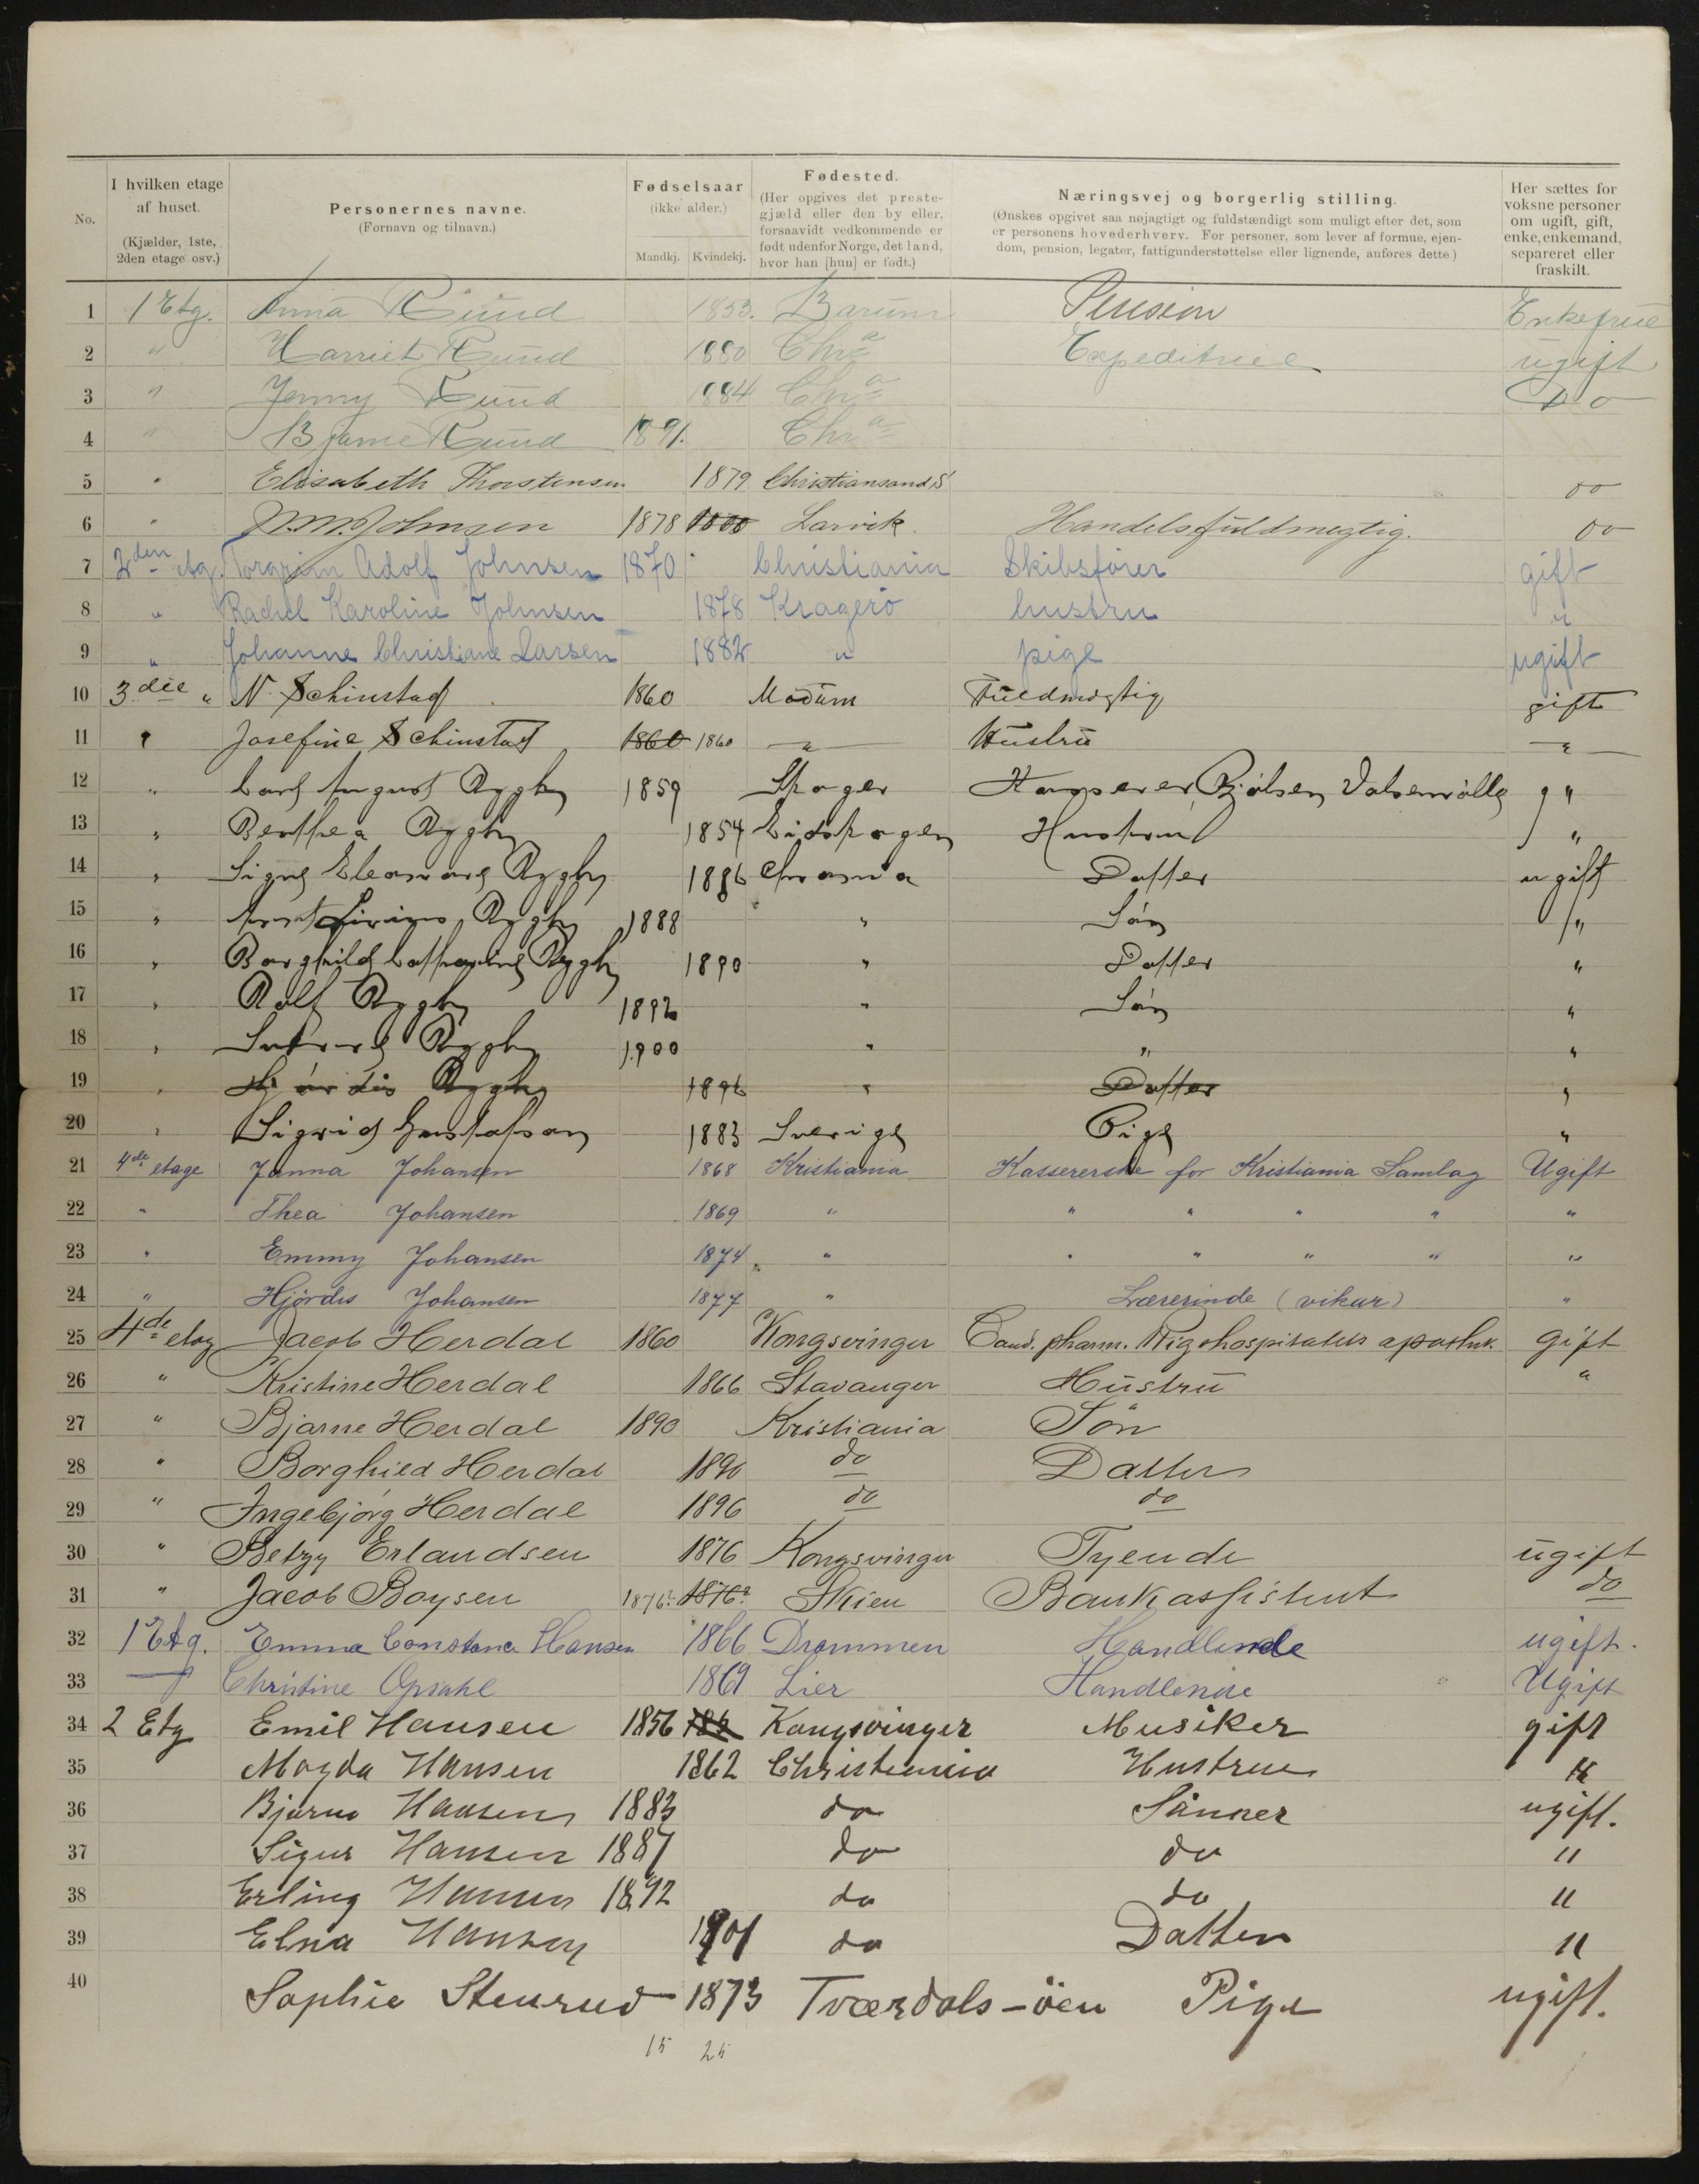 No.
I hvilken etage af huset. (Kjælder, 1ste, 2den etage osv.)
Personernes navne. (Fornavn og tilnavn.)
Fødselsaar (ikke alder.) Mandkj. Kvindekj.
Fødested. (Her opgives det prestegjæld eller den by eller, forsaavidt vedkommende er født udenfor Norge, det land, hvor han [hun] er født.)
Næringsvej og borgerlig stilling. (Ønskes opgivet saa nøjagtigt og fuldstændigt som muligt efter det, som er personens hovederhverv. For personer, som lever af formue, ejendom, pension, legater, fattigunderstøttelse eller lignende, anføres dette.)
Her sættes for voksne personer om ugift, gift, enke, enkemand, separeret eller fraskilt.
1 1 Etg. Anna Ruud 1853. Barum Pension Enkefrue
2 " Harriet Ruud 1880 Chra Expeditrice ugift
3 " Jenny Ruud 1884 Chra Do
4 " Bjarne Ruud 1891. Chra
5 " Elisabeth Thorstensen 1879 Christiansand S do
6 " Johnsen 1878 Larvik. Handelsfuldmegtig. do
7 2den etg. Torgrim Adolf Johnsen 1870 Christiania Skibsfører gift
8 " Rachel Karoline Johnsen 1878 Kragerö hustru "
9 " Johanne Christiane Larsen 1882 " pige ugift
10 3die " N. Schinstad 1860 Modum Fuldmægtig gift
11 " Josefine Schinstad 1860 1860 " Hustru "
12 " Carl August Rygh 1859 Skoger Bjølsen Valsemølle g "
13 " Berthea Rygh 1854 Eidskogen Hustru "
14 " Signe Eleonore Rygh 1886 Chrania Datter ugift
15 " Rygh 1888 " Søn "
16 " Borghild Cathrine Rygh 1890 " Datter "
17 " Rolf Rygh 1892 " Søn "
18 " Sverre Rygh 1900 " " "
19 " Hjørdis Rygh 1896 " Datter "
20 " Sigrid Gustafson 1883 Sverige Pige "
21 4de etage Janna Johansen 1868 Kristiania Kassererske for Kristiania Samlag Ugift
22 " Thea Johansen 1869 " " " " " "
23 " Emmy Johansen 1874 " " " " " "
24 " Hjördis Johansen 1877 " Lærerinde (vikar) "
25 4de etag Jacob Herdal 1860 Kongsvinger Cand. pharm. Rigshospitalets apothek. gift
26 " Kristine Herdal 1866 Stavanger Hustru "
27 " Bjarne Herdal 1890 Kristiania Sön
28 " Borghild Herdal 1890 do Datter
29 " Ingebjørg Herdal 1896 do do
30 " Betzy Erlandsen 1876 Kongsvinger Tyende ugift
31 " Jacob Boysen 1876? 1876? Skien Bankassistent do
32 1 Etg. Emma Constance Hansen 1866 Drammen Handlende ugift.
33 " Christine Opsahl 1869 Lier Handlende Ugift
34 2 Etg Emil Hansen 1856 Kongsvinger Musiker gift
35 Magda Hansen 1862 Christiania Hustrue "
36 Bjarne Hansen 1883 do Sønner ugift.
37 Sigur Hansen 1887 do do "
38 Erling Hansen 1892 do do "
39 Elna Hansen 1901 do Datter "
40 Sophie Stenrud 1873 Tværdals-öen Pige ugift.
15 25